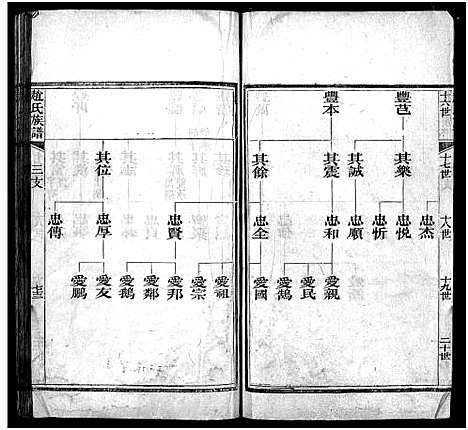 十六世
十七世
十八世
十九世
二十世
豐芑
豐本
其樂
其誠
其震
其餘
忠杰
忠悅
忠忻
忠順
忠和
忠仝
愛親
愛民
愛鶴
愛國
趙氏族譜
三支
七三
其位
忠賢
忠厚
忠傳
愛祖
愛宗
愛邦
愛鄰
愛鵝
愛友
愛鵬